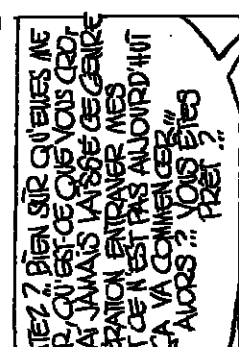 TEZ ? BIEN SÛR QU'ELLES ME
R, QU'EST-CE QUE VOUS CROY
AI JAMAIS LAISSÉ CE GENRE
RATION ENTRAVER MES
T CE N'EST PAS AUJOURD'HUI
ÇA VA COMMENCER...
ALORS ? VOUS ÊTES
PRÊT ?...